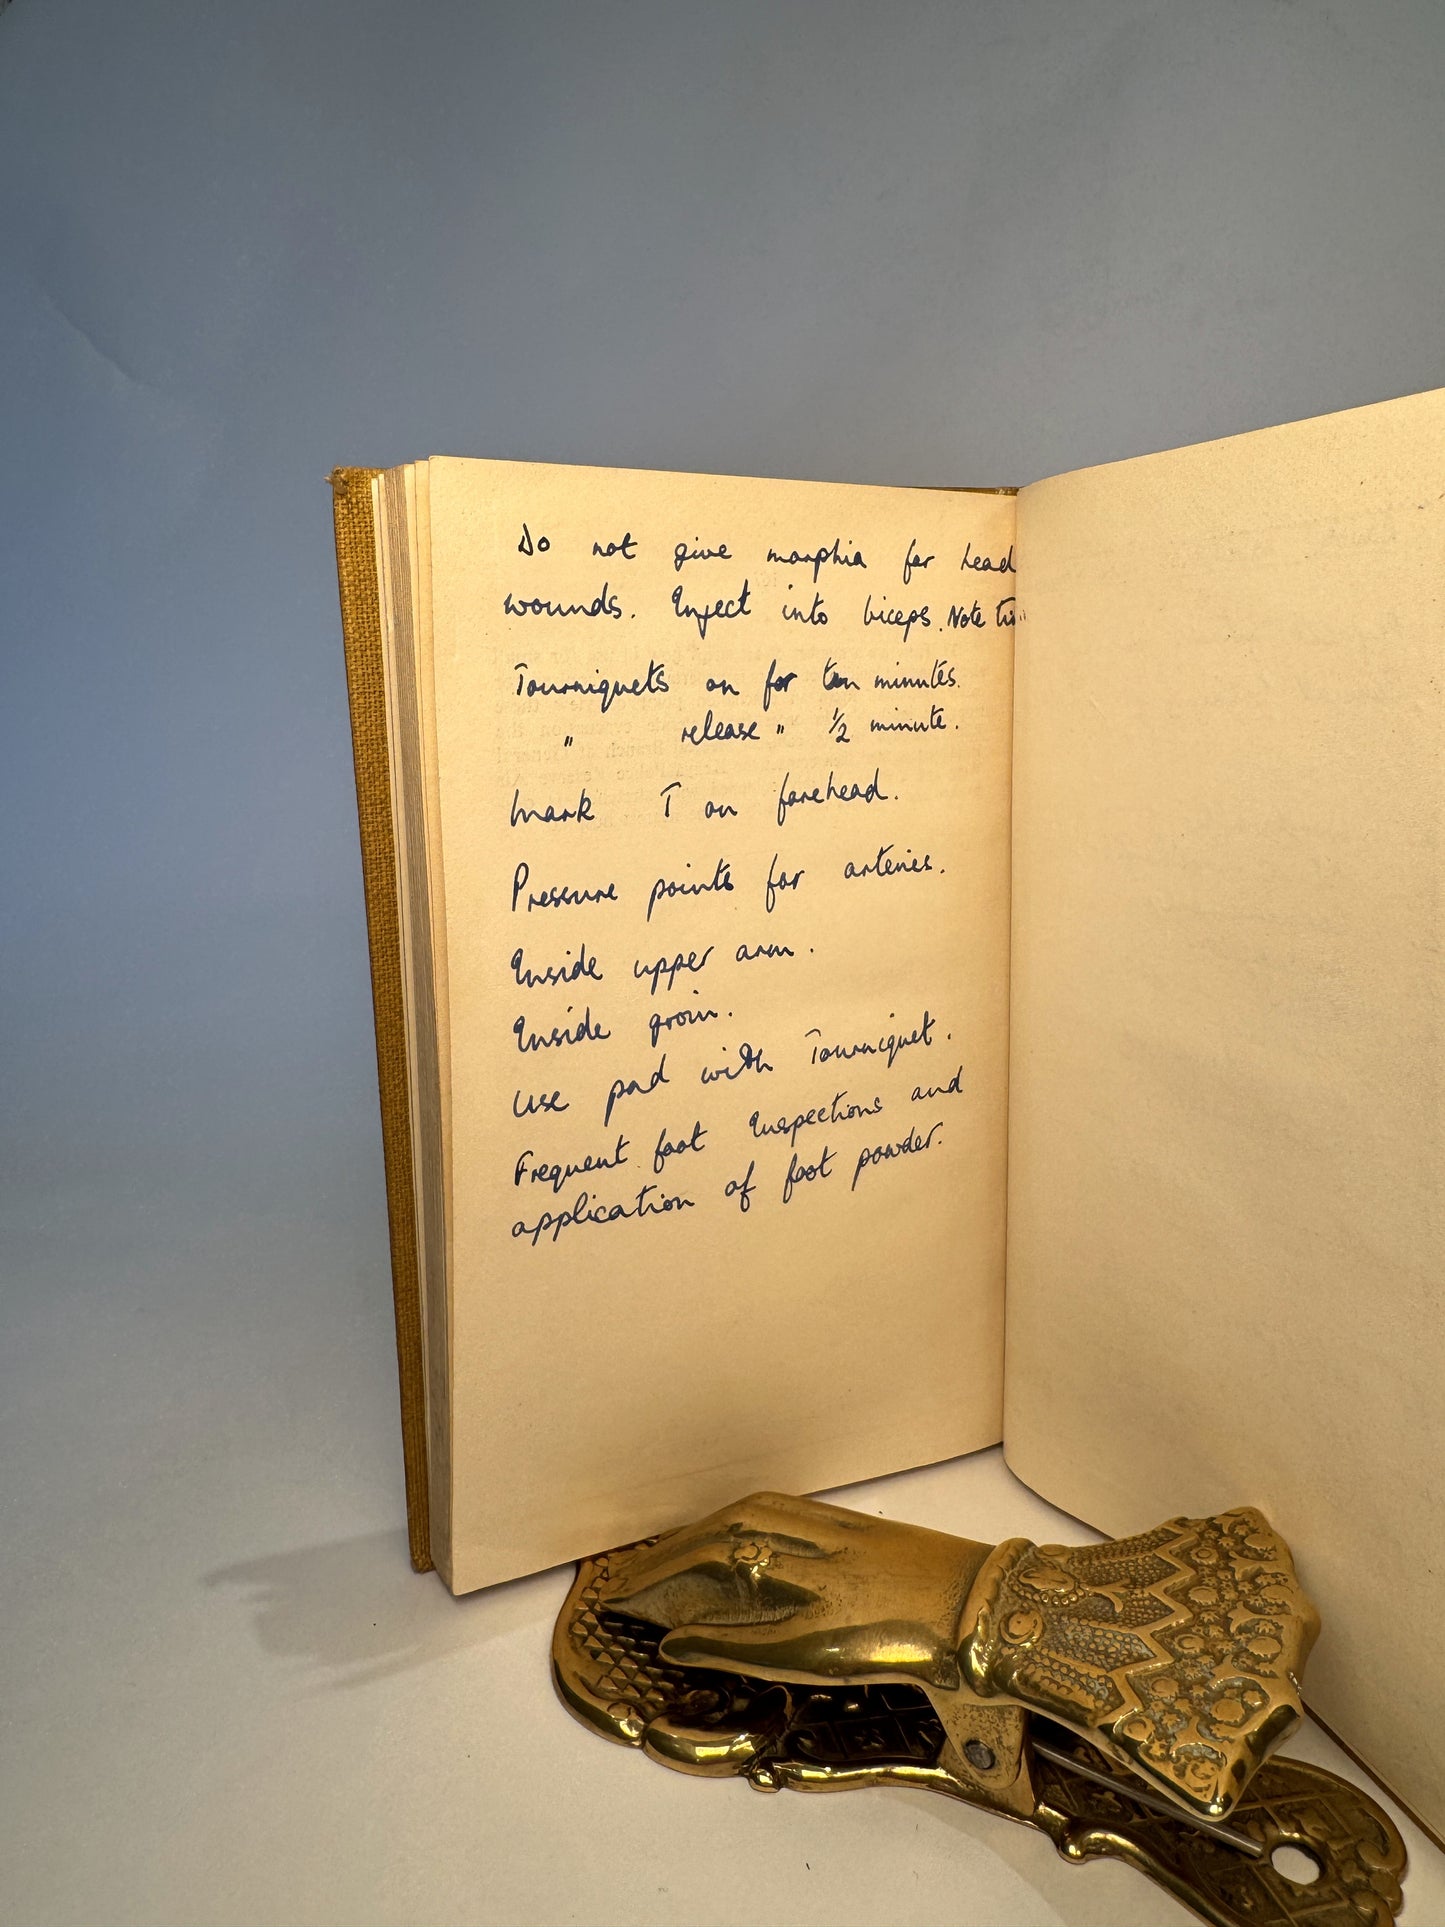 Do not give morphia for head
wounds. Inject into biceps. Note
Tourniquets on for ten minutes.
" release " 1/2 minute.
Mark T on forehead.
Pressure points for arteries.
Inside upper arm.
Inside groin.
Use pad with Tourniquet.
Frequent foot Inspections and
application of foot powder.